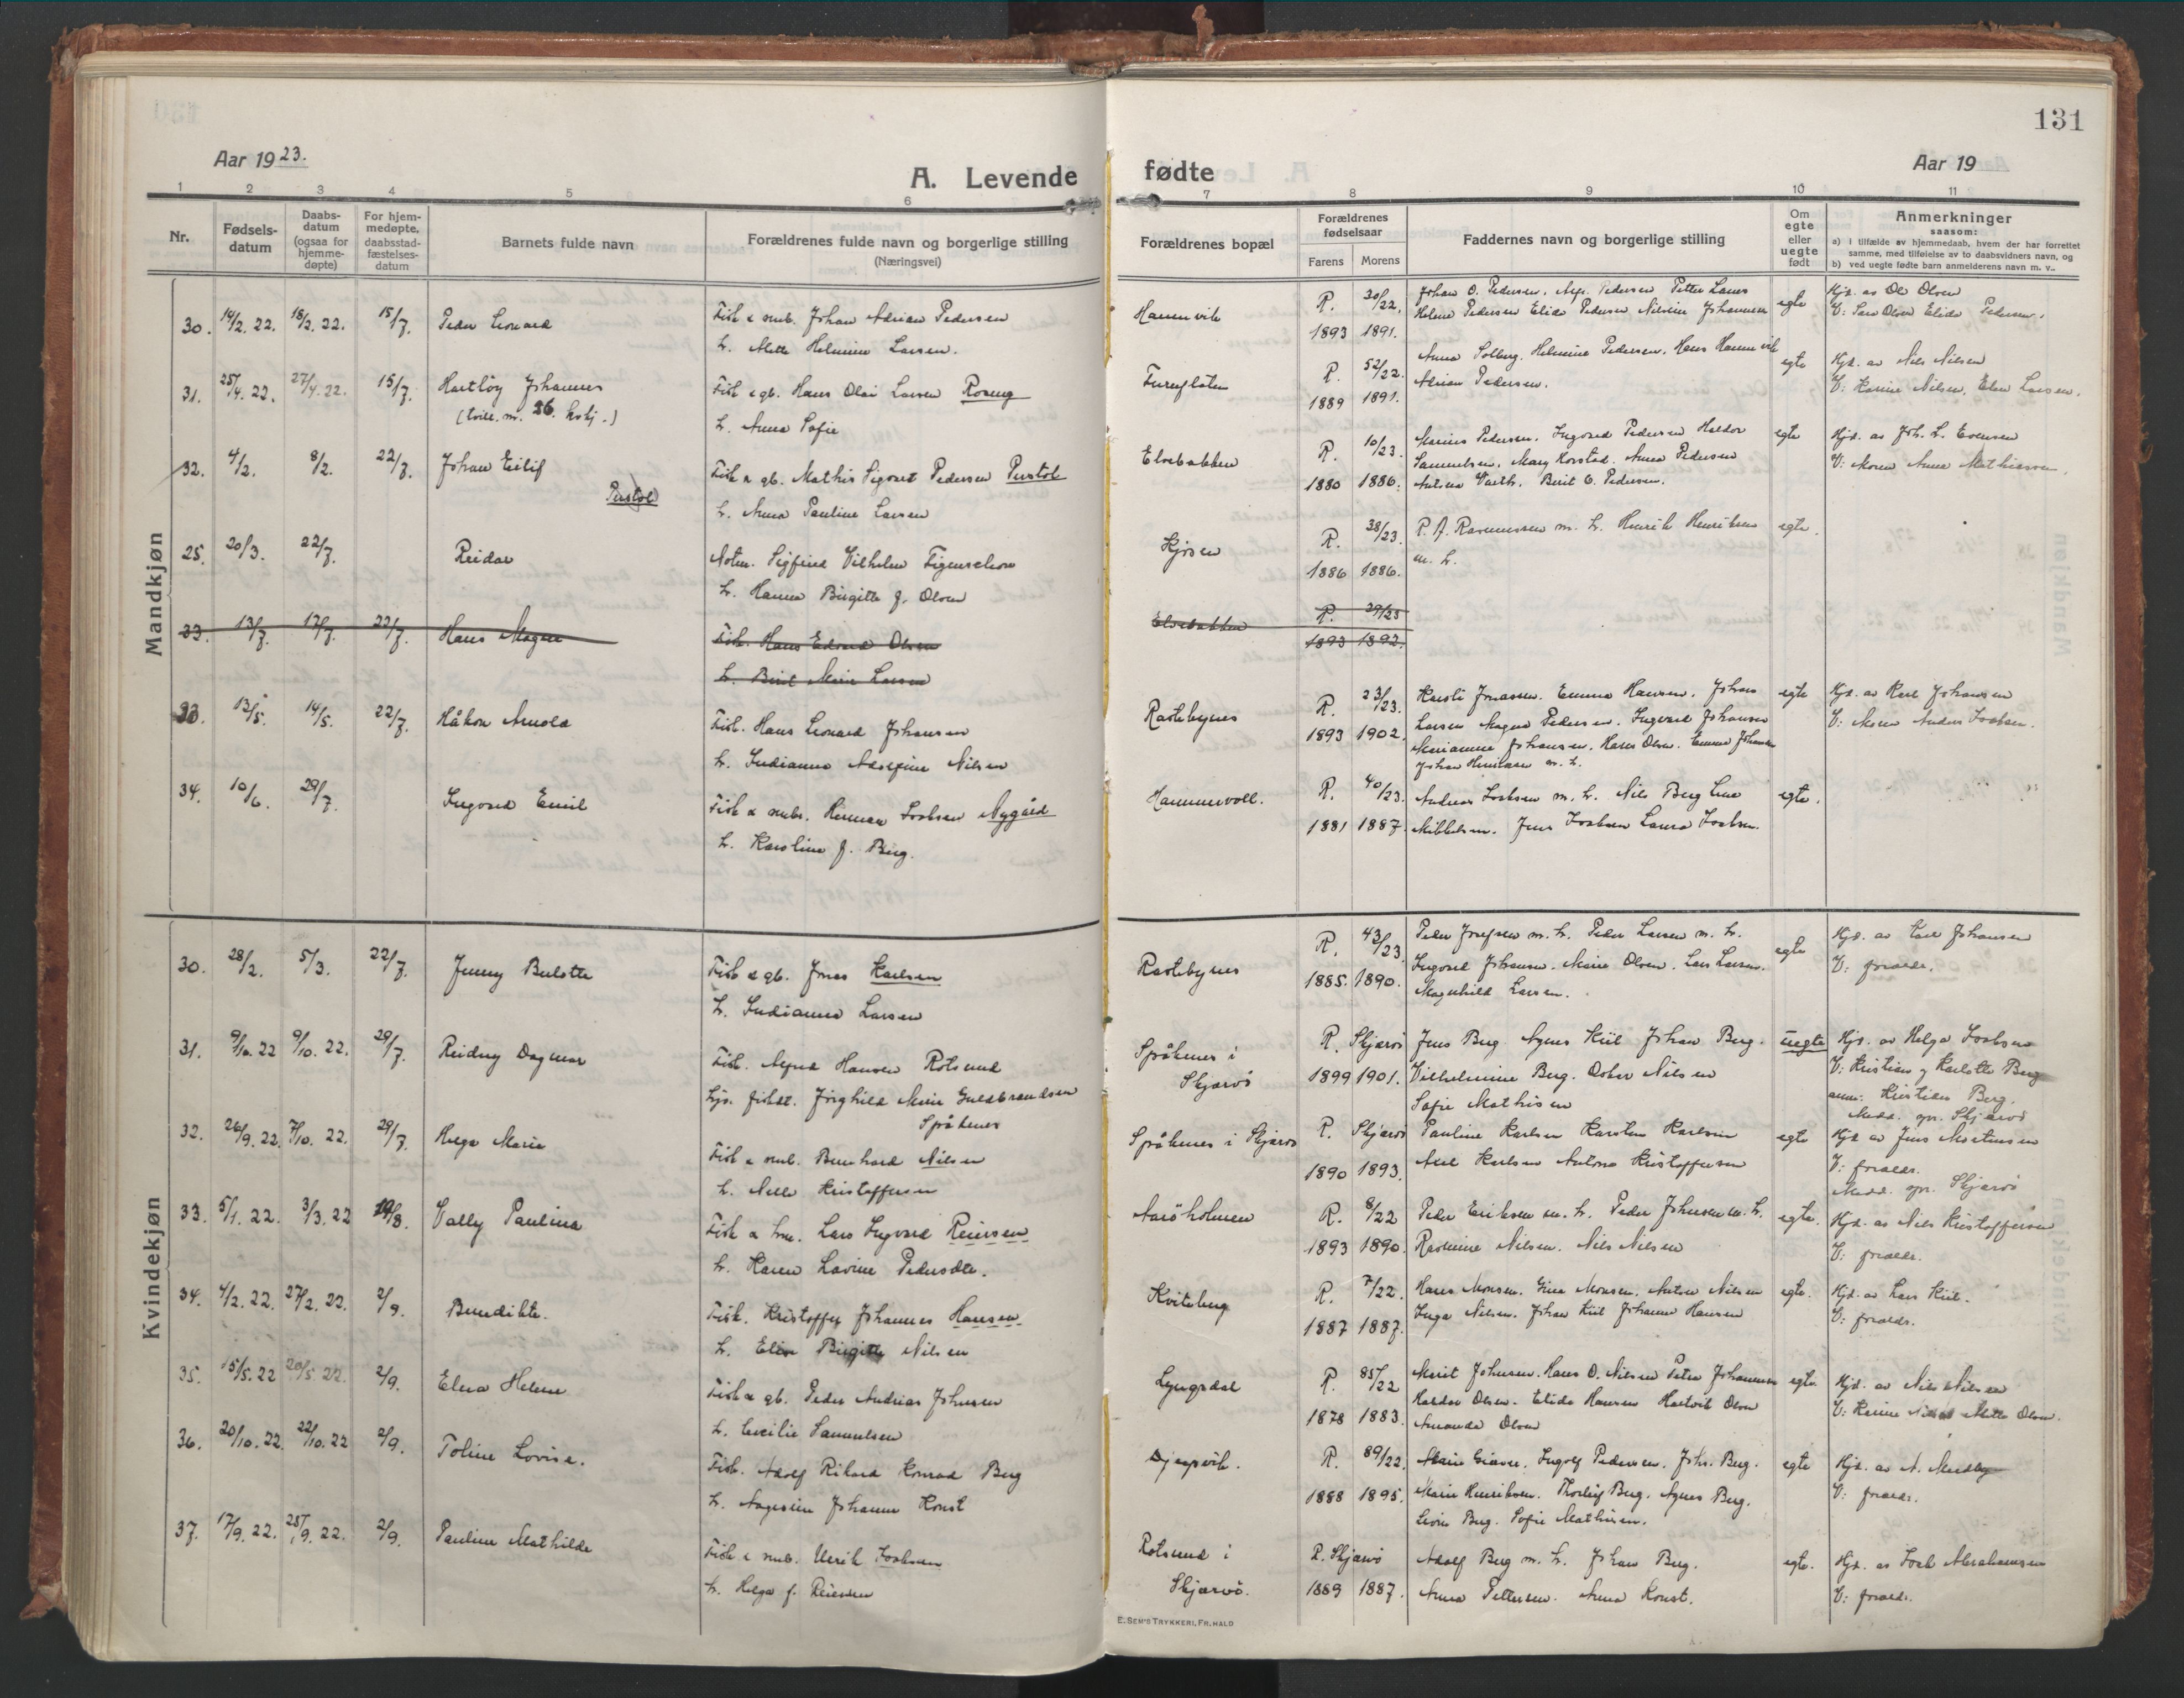 131
Aar 1923.
A. Levende
fødte
Aar 19
1 2 3 4 5 6 7 8 9 10 11
Nr.
Fødsels-
datum
Daabs-
datum
(ogsaa for
hjemme-
døpte)
For hjem-
medøpte,
daabsstad-
fæstelses-
datum
Barnets fulde navn
Forældrenes fulde navn og borgerlige stilling
(Næringsvei)
Forældrenes bopæl
Forældrenes
fødselsaar
Farens Morens
Faddernes navn og borgerlige stilling
Om
egte
eller
uegte
født
Anmerkninger
saasom:
a) i tilfælde av hjemmedaab, hvem der har forrettet
samme, med tilføielse av to daabsvidners navn, og
b) ved uegte fødte barn anmelderens navn m. v..
Mandkjøn
30. 14/2. 22. 18/2. 22. 15/7. Peder Leonard
Fisk & smb. Johan Adrian Pedersen
h. Mette Helmine Larsen.
R. 30/22.
1893 1891.
Johan O. Pedersen. Pedersen Petter Larses
Helene Pedersen Elida Pedersen Nilsine Johannesen
egte
Hjd. av Ole Olsen
V: Sara Olsen Elida Pedersen.
31. 25/4. 22. 27/4. 22. 15/7. Hartløg Johannes
(tvill. m. 26. kvkj.)
Fisk & gb. Hans Olai Larsen Roseng
h. Anna Sofie
Furuflaten
R. 52/22.
1889 1891.
Anna Solberg. Helmine Pedersen. Hans Hamnvik
Adrian Pedersen.
egte
Hjd. av Nils Nilsen
V: Karine Nilsen. Elen Larsen.
32. 4/2. 8/2. 22/7. Johan Eilif
Fisk & gb. Mathis Sigvart Pedersen Perstøl
h. Anna Pauline Larsen
Elvebakken
R. 10/23.
1880 1886.
Marius Pedersen. Ingvard Pedersen Haldor
Samuelsen. Mary Korstad. Anna Pedersen
Berit O. Pedersen.
egte
Hjd. av Joh. L. Evensen
V: Moren Anna Mathiassen.
25. 20/3. 22/7. Reidar
Sigfred Vilhelm Figenschou
h. Hanna Birgitte f. Olsen
Kjosen
R. 38/23.
1886 1886.
R. A. Rasmussen m. h. Henrik Henriksen
m. h.
egte.
33. 13/7. 17/7. 22/7. Hans Magne
Fisk. Hans Edvard Olsen
h. Berit Marie Larsen
Elvebakken
R. 29/23
1893 1892.
33. 12/5. 14/5. 22/7. Håkon Arnold
Fisk. Hans Leonard Johansen
h. Indianna Nilsen
Rastebynes
R. 23/23.
1893 1902.
Karsti Jonassen. Emma Hansen. Johan
Larsen Magna Pedersen. Ingvard Johansen
Marianne Johansen. Hans Olsen. Emma Johansen
Johan Henriksen m. h.
egte
Hjd. av Karl Johansen
V: Moren Anders Isaksen.
34. 10/6. 29/7. Ingvard Emil
Fisk & smbr. Herman Isaksen Nygård
h. Karoline f. Berg.
Hammervoll.
R. 40/23.
1881 1887.
Andreas Isaksen m. h. Nils Berg Lina
Mikkelsen. Jens Isaksen Laura Isaksen.
egte.
Kvindekjøn
30. 28/2. 5/3. 22/7. Jenny Bulotte
Fisk & gb. Jonas Karlsen
h. Indianna Larsen
Rastebynes
R. 43/23.
1885. 1890.
Peder Josefsen m. h. Peder Larsen m. h.
Ingvard Johansen. Marie Olsen. Lars Larsen.
Magnhild Larsen.
egte
Hjd. av Karl Johansen
V: foraldr.
31. 9/10. 22 9/10. 22. 29/7. Reidny Dagmar
Fisk. Alfred Hansen Rotsund
Lys. fiskdt. Jorghild Marie Guldbrandsen
Spåknes
Spåknes i
Skjærvö
R. Skjærvö
1899 1901.
Jens Berg Agnes Kiil Johan Berg.
Vilhelmine Berg. Oskar Nilsen
Sofie Mathisen
uegte
Hjd. av Helga Isaksen
V: Kristian og Karlotte Berg
anm: Kristian Berg.
Medd. spr. Skjærvö
32. 26/9. 22. 7/10. 22. 29/7. Helga Marie
Fisk & smb. Bernhard Nilsen
h. Nella Kristoffersen
Spåknes i Skjærvö
R. Skjærvö
1890 1893.
Pauline Karlsen Karsten Karlsen
Axel Karlsen Antona Kristoffersen
egte
Hjd av Jens Mortensen
V: foraldr.
Medd. spr. Skjærvö
33. 5/1. 22. 3/3. 22 19/8. Vally Paulina
Fisk & lm. Lars Ingvard Reiersen
h. Karen Lovise Pedersdtr.
Aaröholmen
R. 8/22
1893 1890.
Peder Eriksen m. h. Peder Johnsen m. h.
Rasmine Nilsen. Nils Nilsen
egte.
Hjd. av Nils Kristoffersen
V: foraldr.
34. 4/2. 22. 27/2. 22. 2/9. Bendikte.
Fisk. Kristoffer Johannes Hansen.
h. Elen Birgitte Nilsen
Kviteberg
R. 7/22.
1887 1887.
Hans Monsen. Gina Monsen. Anton Nilsen
Inga Nilsen. Johan Kiil Johanna Hansen
egte.
Hjd. av Lars Kiil.
V: foraldr.
35. 15/5. 22 20/5. 22. 2/9. Elna Helene
Fisk & gb. Peder Andreas Johnsen
h. Cecilie Samuelsen
Lyngsdal
R. 85/22
1878 1883.
Marit Johnsen. Hans O. Nilsen Petra Johannesen
Haldor Olsen. Elida Hansen Hartvik Olsen
Amanda Olsen
egte.
Hjd. av Nils Nilsen
V: Karine Mette Olsen.
36. 20/10. 22. 22/10. 22 2/9. Toline Lovise.
Fisk. Adolf Rikard Konrad Berg
h. Johanne Konst
Djupvik.
R. 89/22.
1888 1895.
Marie Giæver. Ingolf Pedersen. Johs. Berg.
Marie Henriksen. Thorleif Berg. Agnes Berg.
Berg. Sofie Mathisen.
egte
Hjd. av A. Medby
V: foraldr.
37. 17/9. 22. 25/9. 22. 2/9. Pauline Mathilde
Fisk & smb. Ulrik Isaksen
h. Helga f. Reiersen
Rotsund i
Skjærvö.
R. Skjærvö
1889 1887.
Adolf Berg m. h. Johan Berg.
Anna Pettersen. Anna Konst.
egte.
Hjd. av Isak Abrahamsen
V: foraldr.
E. SEM'S TRYKKERI, FR.HALD